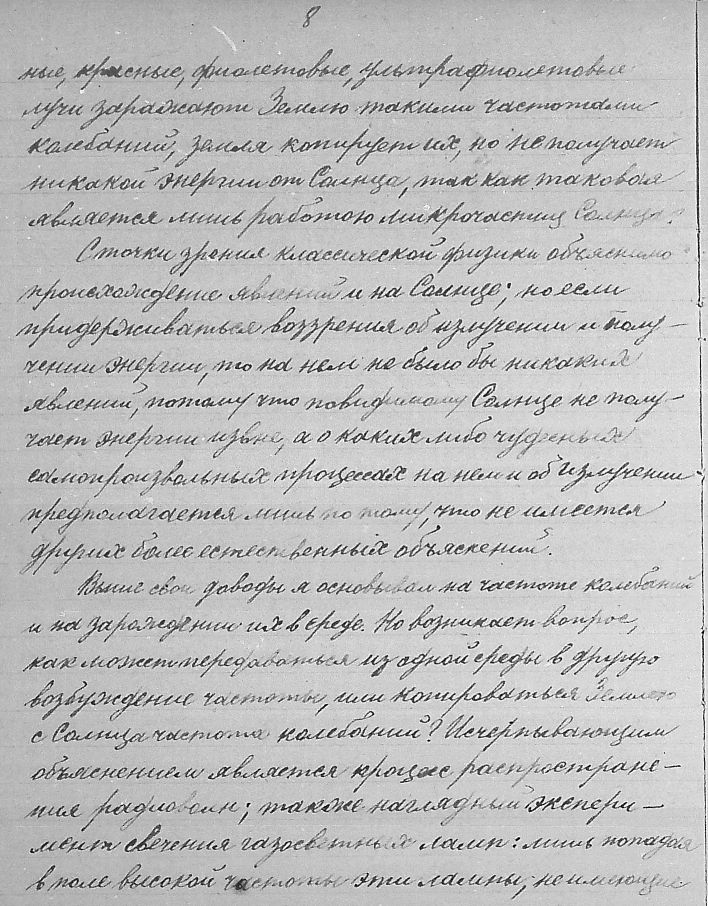 8
ные, красные, фиолетовые, ультрафиолетовые
лучи заражают Землю такими частотами
колебаний, земля копирует их, но не получает
никакой энергии от Солнца, так как таковая
является лишь работою микрочастиц Солнца.
С точки зрения классической физики объяснимо
происхождение явлений и на Солнце; но если
придерживаться воззрения об излучении и полу-
чении энергии, то на нем не было бы никаких
явлений, потому что повидимому Солнце не полу-
чает энергии извне, а о каких либо чудесных
самопроизвольных процессах на нем и об излучении
предполагается лишь по тому, что не имеется
других более естественных объяснений.
Выше свои доводы я основывал на частоте колебаний
и на зарождении их в среде. Но возникает вопрос,
как может передаваться из одной среды в другую
возбуждение частоты, или копироваться Землею
с Солнца частота колебаний? Исчерпывающим
объяснением является процесс распростране-
ния радиоволн; также наглядный экспери-
мент свечения газосветных ламп: лишь попадая
в поле высокой частоты эти лампы, не имеющие